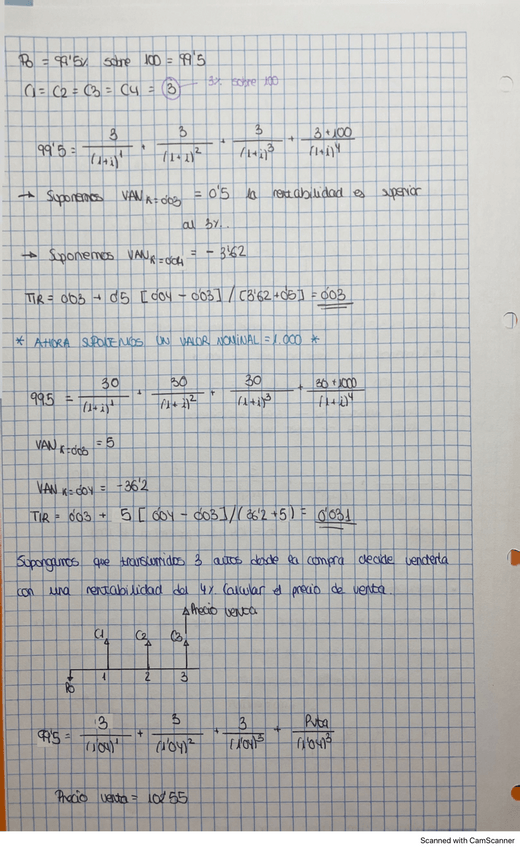 P0 = 99'5% sobre 100 = 99'5
C1 = C2 = C3 = C4 = 3 3% sobre 100
99'5 = 3/(1+i)^1 + 3/(1+i)^2 + 3/(1+i)^3 + 3+100/(1+i)^4
→ Suponemos VAN K=0'03 = 0'5 la rentabilidad es superior
al 3%.
→ Suponemos VAN K=0'04 = -3'62
TIR = 0'03 + 0'5 [0'04 - 0'03] / (3'62+0'5) = 0'03
* AHORA SUPONEMOS UN VALOR NOMINAL = 1.000 *
995 = 30/(1+i)^1 + 30/(1+i)^2 + 30/(1+i)^3 + 30+1000/(1+i)^4
VAN K=0'03 = 5
VAN K=0'04 = -36'2
TIR = 0'03 + 5 [0'04 - 0'03]/(36'2+5) = 0'031
Supongamos que transcurridos 3 años desde la compra decide venderla
con una rentabilidad del 4% Calcular el precio de venta.
Precio venta
C1 C2 C3
P0 1 2 3
99'5 = 3/(1'04)^1 + 3/(1'04)^2 + 3/(1'04)^3 + Pvta/(1'04)^3
Precio venta = 102'55
Scanned with CamScanner